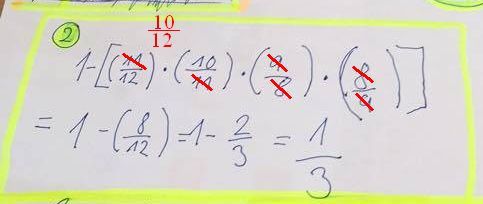 10/12
2
1-[(11/12)·(10/11)·(9/8)·(8/9)]
= 1-(8/12)=1-2/3 = 1/3